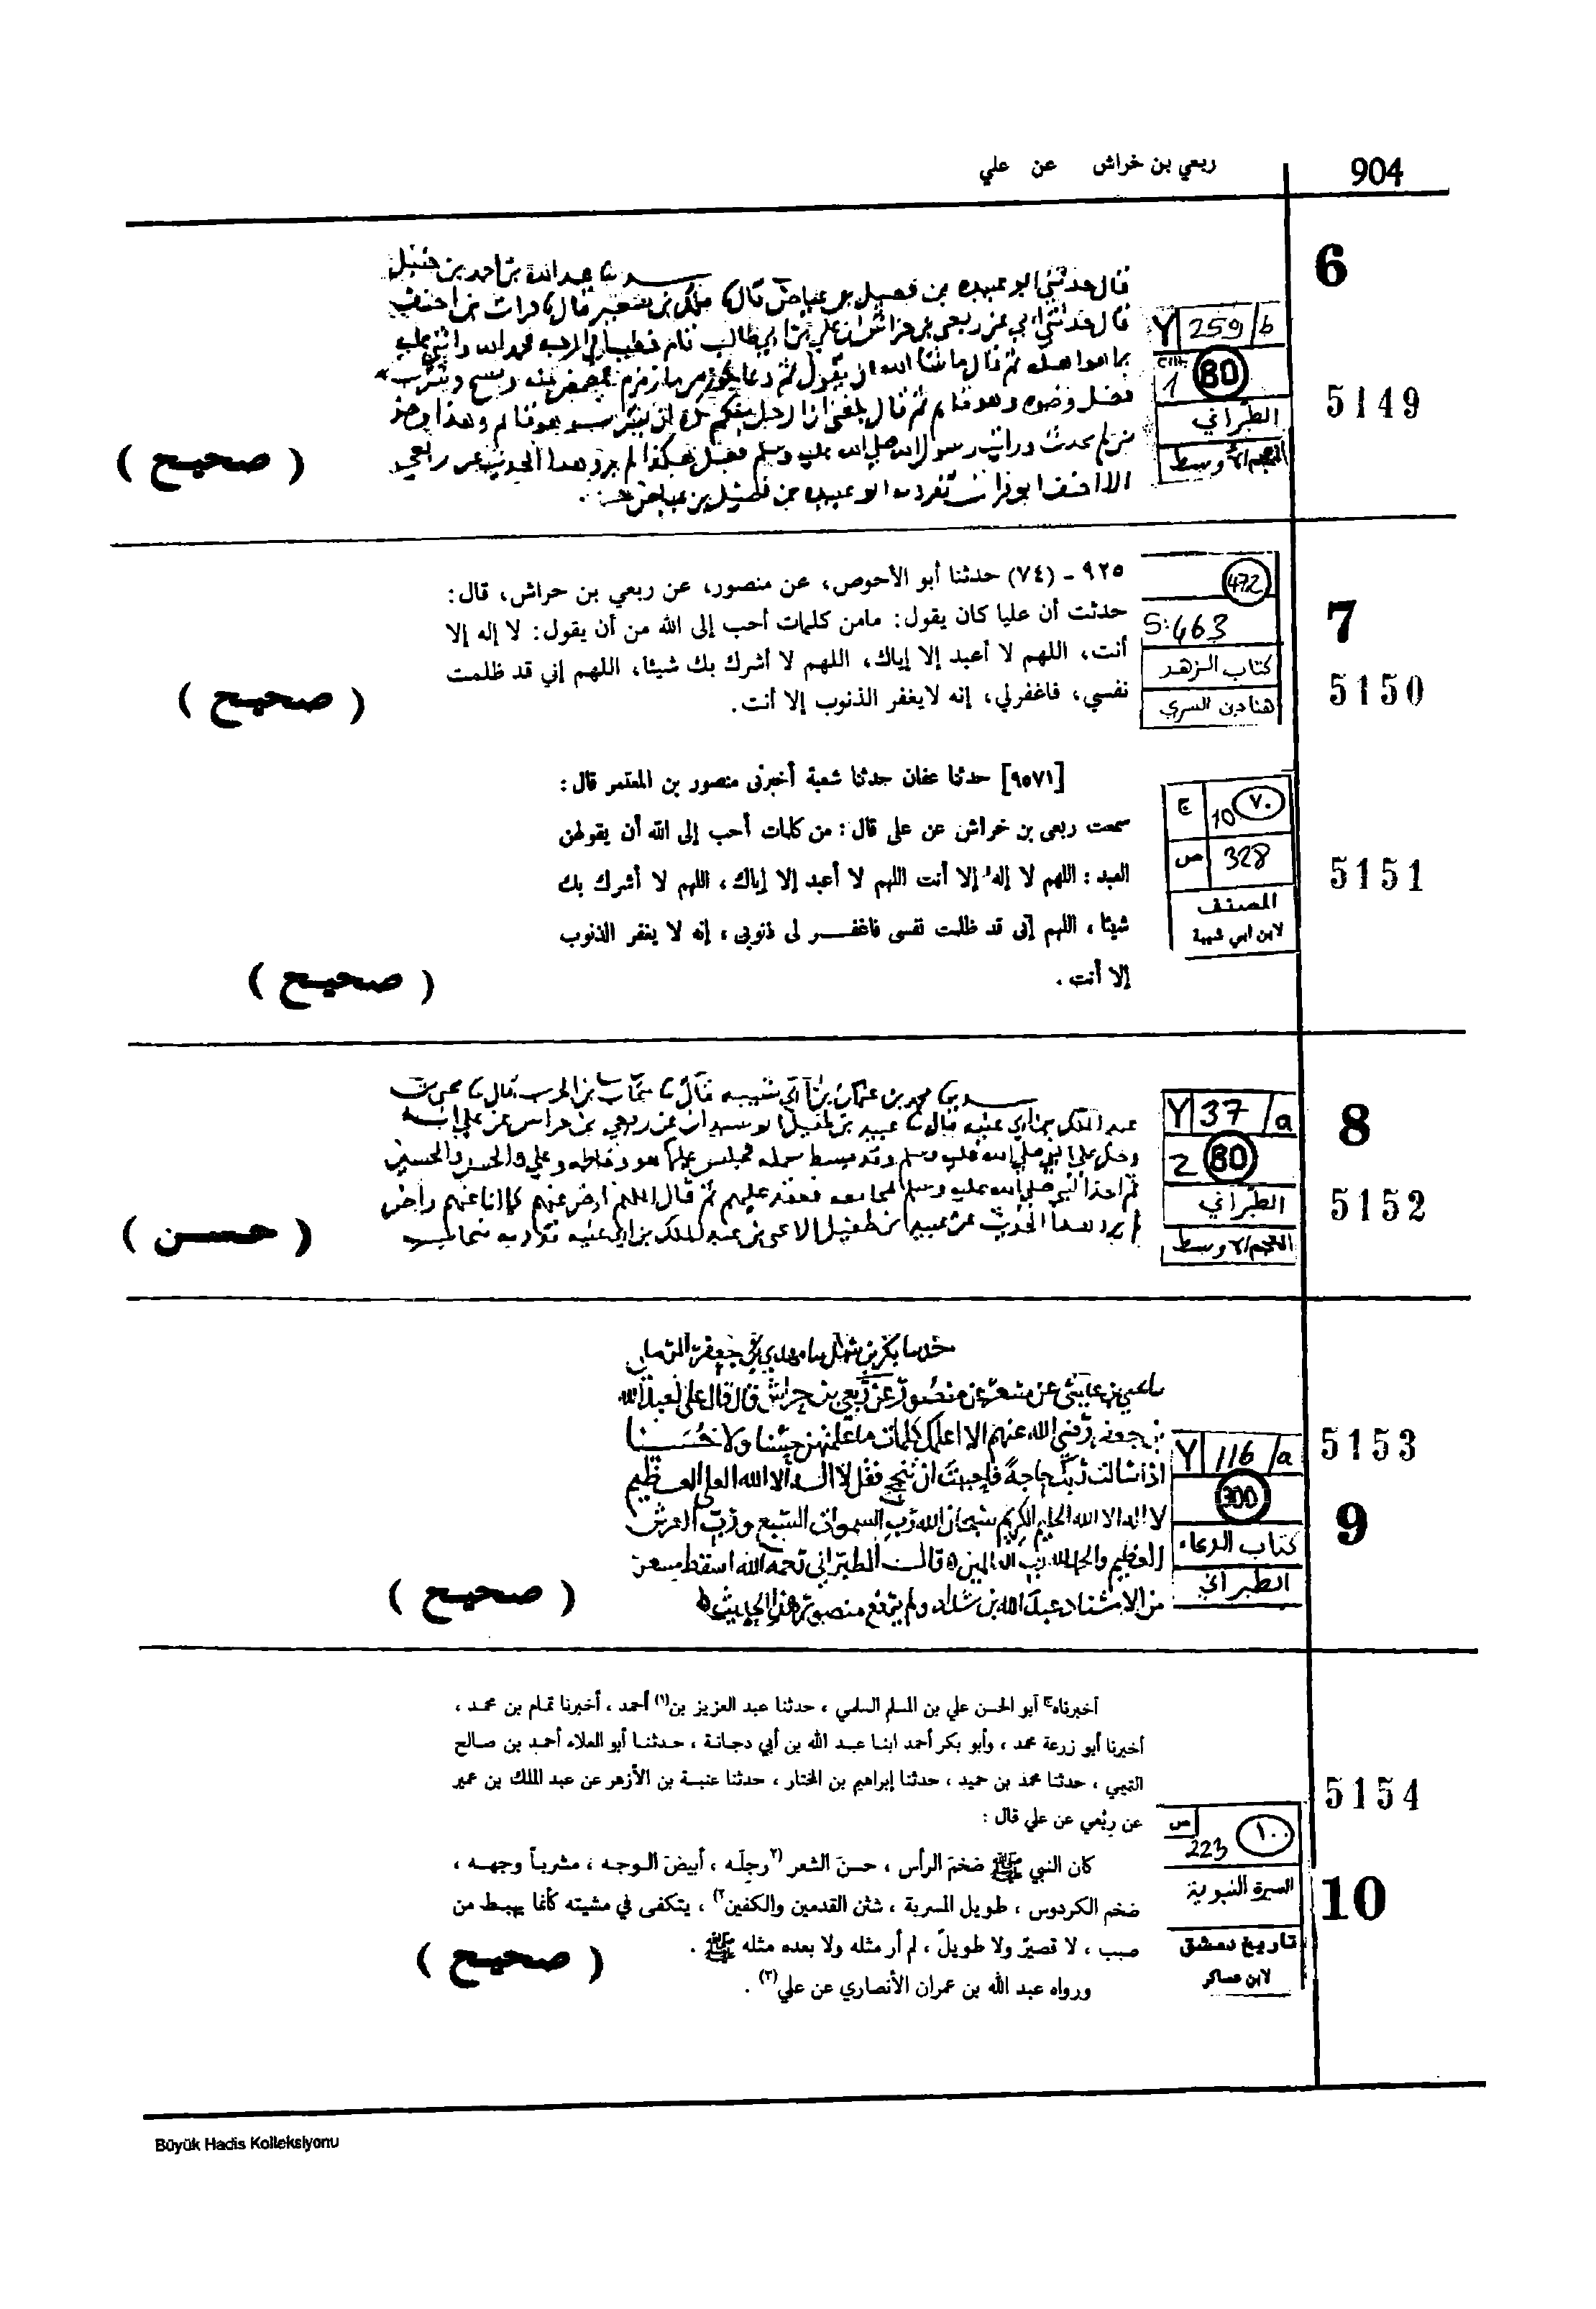 904
ربعي بن خراش عن علي
6
5149
Y 259/b
cilt 1 80
الطبراني
المعجم الأوسط
حدثنا عبد الله بن احمد بن حنبل
قال حدثني ابو عبيده بن فضيل بن عياض قال
قال حدثني ابي عن ربعي بن حراش ان علي بن ابي طالب قام خطيبا في الرحبه فحمد الله واثنى عليه
بما هو اهله ثم قال ما شا الله ان يقول ثم دعا بكوز من ما زمزم فتمضمض منه ومسح وشرب
فضل وضوه وهو قايم ثم قال بلغني ان الرجل منكم يكره ان يشرب وهو قايم وهذا وضو
من لم يحدث ورايت رسول الله صلى الله عليه وسلم فعل هكذا لم يرو هذا الحديث عن ربعي
الا احنف ابو فرات تفرد به ابو عبيده بن فضيل بن عياض
( صحيح )
7
5150
472
S: 463
كتاب الزهد
هناد بن السري
٩٢٥ - (٧٤) حدثنا أبو الأحوص، عن منصور، عن ربعي بن حراش، قال:
حدثت أن عليا كان يقول: مامن كلمات أحب إلى الله من أن يقول: لا إله إلا
أنت، اللهم لا أعبد إلا إياك، اللهم لا أشرك بك شيئا، اللهم إني قد ظلمت
نفسي، فاغفرلي، إنه لايغفر الذنوب إلا أنت.
( صحيح )
5151
ج 10 ٧٠
ص 328
المصنف
لابن ابي شيبة
[٩٥٧١] حدثنا عفان حدثنا شعبة أخبرنى منصور بن المعتمر قال :
سمعت ربعى بن خراش عن على قال : من كلمات أحب إلى الله أن يقولهن
العبد : اللهم لا إله إلا أنت اللهم لا أعبد إلا إياك ، اللهم لا أشرك بك
شيئا ، اللهم إنى قد ظلمت نفسى فاغفر لى ذنوبى ، إنه لا يغفر الذنوب
إلا أنت .
( صحيح )
8
5152
Y 37/a
2 80
الطبراني
المعجم الأوسط
حدثنا محمد بن عثمان بن ابي شيبه قال
عبد الملك بن ابي غنيه قال عبيد بن طفيل ابو سيدان عن ربعي بن حراس عن علي انه
دخل على النبي صلى الله عليه وسلم وقد بسط شمله فجلس عليها هو وفاطمه وعلي والحسن والحسين
ثم اخذ النبي صلى الله عليه وسلم بمجامعه فعقد عليهم ثم قال اللهم ارض عنهم كما انا عنهم راض
لم يرو هذا الحديث عن عبيد بن طفيل الا بن عبد الملك بن ابي غنيه تفرد به
( حسن )
5153
9
Y 116/a
300
كتاب الدعاء
الطبراني
حدثنا بكر بن سهل مهدي بن جعفر الرملي
عن مسعر عن منصور عن ربعي بن حراش قال قال علي لعبد الله
بن جعفر رضي الله عنهم الا اعلمك كلمات ما علمتهن حسنا ولا حسينا
اذا سالت ربك حاجة فاحببت ان تنجح فقل لا اله الا الله العلي العظيم
لا اله الا الله الحليم الكريم سبحان الله رب السموات السبع ورب العرش
العظيم والحمد لله رب العالمين قال الطبراني رحمه الله اسقط مسعر
من الاسناد عبد الله بن شداد ولم يرفع منصور هذا الحديث
( صحيح )
5154
10
ص 223 ١٠٠
السيرة النبوية
تاريخ دمشق
لابن عساكر
أخبرناه أبو الحسن علي بن المسلم السلمي ، حدثنا عبد العزيز بن(١) أحمد ، أخبرنا تمام بن محمد ،
أخبرنا أبو زرعة محمد ، وأبو بكر أحمد ابنا عبد الله بن أبي دجانة ، حدثنا أبو العلاء أحمد بن صالح
التميمي ، حدثنا محمد بن حميد ، حدثنا إبراهيم بن المختار ، حدثنا عنبسة بن الأزهر عن عبد الملك بن عمير
عن رِبْعي عن علي قال :
كان النبي ﷺ ضخمَ الرأس ، حسنَ الشعر (٢رجلَه ، أبيضَ الوجه ، مشرباً وجهه ،
ضخم الكردوس ، طويل المسربة ، شثن القدمين والكفين٢) ، يتكفى في مشيته كأنما يهبط من
صبب ، لا قصيرٌ ولا طويلٌ ، لم أر مثله ولا بعده مثله ﷺ .
ورواه عبد الله بن عمران الأنصاري عن علي(٣) .
( صحيح )
Büyük Hadis Kolleksiyonu